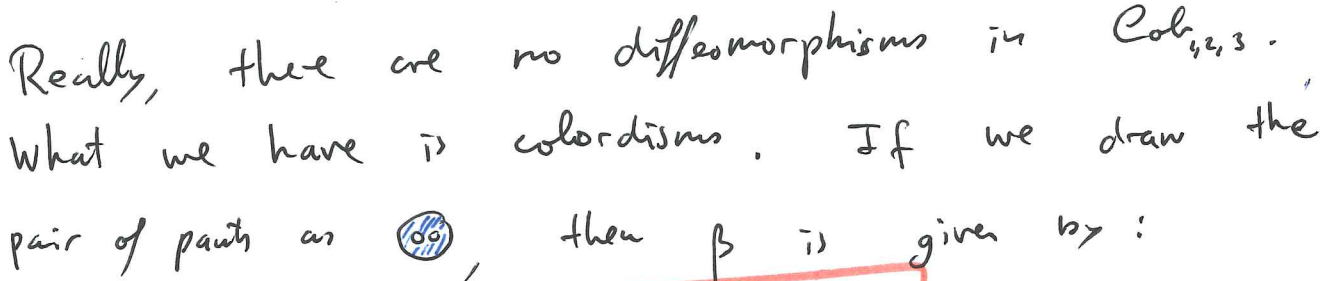 Really, there are no diffeomorphisms in Cob₁,₂,₃.
What we have is cobordisms. If we draw the
pair of pants as , then β is given by: